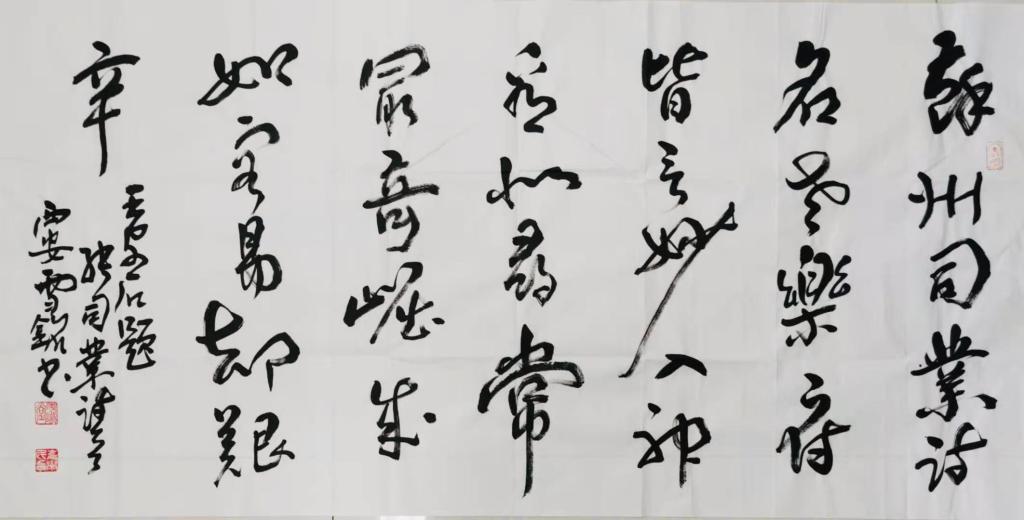 蘇州司業詩
名老樂府
皆言妙入神
看似尋常
最奇崛成
如容易却艱
辛
王安石題
張司業詩
西安雪書